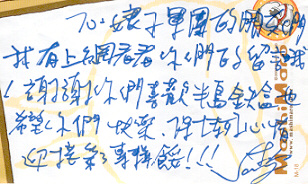 軍團的朋友們
我有上網看看你們的留言
！謝謝你們喜歡半島
希望你們快樂，保持好心情
迎接新專輯!!!